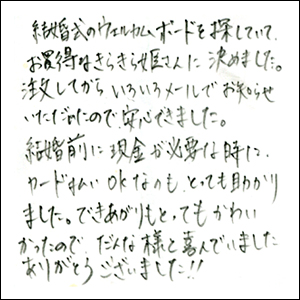 結婚式のウェルカムボードを探していて、
お買得なきらきら姫さんに決めました。
注文してからいろいろメールでお知らせ
いただけたので、安心できました。
結婚前に現金が必要な時に、
カード払いOKなのも、とっても助かり
ました。できあがりもとってもかわい
かったので、だんな様と喜んでいました
ありがとうございました!!